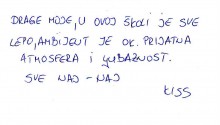 DRAGE MOJE, U OVOJ ŠKOLI JE SVE
LEPO, AMBIJENT JE OK. PRIJATNA
ATMOSFERA I LJUBAZNOST.
SVE NAJ-NAJ
KISS